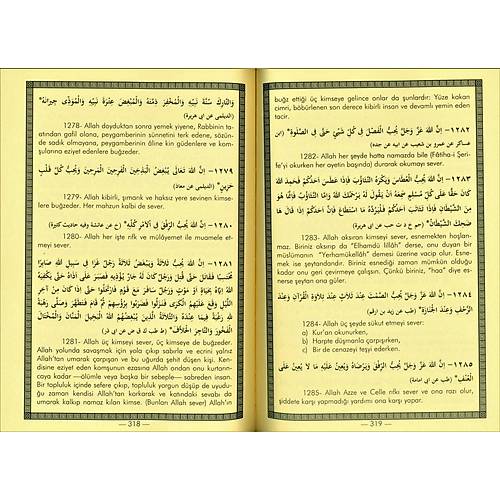 وَالتَّارِكَ سُنَّةَ نَبِيِّهِ وَالْمُخْفِرَ ذِمَّتَهُ وَالْمُبْغِضَ عِتْرَةَ نَبِيِّهِ وَالْمُؤْذِيَ جِيرَانَهُ
(الديلمى عن ابى هريرة)
1278- Allah doyduktan sonra yemek yiyene, Rabbinin ta-
atından gafil olana, peygamberinin sünnetini terk edene, sözün-
de sadık olmayana, peygamberinin âline kin güdenlere ve kom-
şularına eziyet edenlere buğzeder.
١٢٧٩- إِنَّ اللّٰهَ تَعَالَى يُبْغِضُ الْبَذِخِينَ الْفَرِحِينَ الْمَرِحِينَ وَيُحِبُّ كُلَّ قَلْبٍ
حَزِينٍ (الديلمى عن معاذ)
1279- Allah kibirli, şımarık ve haksız yere sevinen kimse-
lere buğzeder. Her mahzun kalbi de sever.
١٢٨٠- إِنَّ اللّٰهَ يُحِبُّ الرِّفْقَ فِى الْاَمْرِ كُلِّهِ (خ عن عائشة وفيه حاديث كثيرة)
1280- Allah her işte rıfk ve mülâyemet ile muamele et-
meyi sever.
١٢٨١- إِنَّ اللّٰهَ يُحِبُّ ثَلَاثَةً وَيُبْغِضُ ثَلَاثَةً رَجُلٌ غَزَا فِى سَبِيلِ اللّٰهِ صَابِرًا
مُحْتَسِبًا فَقَاتَلَ حَتَّى قُتِلَ وَرَجُلٌ كَانَ لَهُ جَارٌ يُؤْذِيهِ فَصَبَرَ عَلَى اَذَاهُ حَتَّى يَكْفِيَهُ
اللّٰهُ اِيَّاهُ بِحَيَاةٍ اَوْ مَوْتٍ وَرَجُلٌ سَافَرَ مَعَ قَوْمٍ
1281- Allah üç kimseyi sever, üç kimseye de buğzeder.
Allah yolunda savaşmak için yola çıkıp sabırla ve ecrini yalnız
Allah'tan umarak çarpışan ve bu uğurda şehit düşen kişi. Ken-
disine eziyet eden komşunun ezasına Allah ondan onu kurtarın-
caya kadar —ölümle veya başka bir sebeple— sabreden insan.
Bir topluluk içinde sefere çıkıp, topluluk yorgun düşüp de uyudu-
ğu zaman kendisi Allah'tan korkarak ve katındaki sevabı da
umarak kalkıp namaz kılan kimse. (Bunları Allah sever) Allah'ın
— 318 —
buğz ettiği üç kimseye gelince onlar da şunlardır: Yüze kakan
cimri, böbürlenen son derece kibirli insan ve devamlı yemin eden
tacir.
١٢٨٢- إِنَّ اللّٰهَ عَزَّ وَجَلَّ يُحِبُّ الْفَضْلَ فِى كُلِّ شَيْءٍ حَتَّى فِى الصَّلٰوةِ (ابن
عساكر عن عمرو بن شعيب عن ابيه عن جده)
1282- Allah her şeyde hatta namazda bile (Fâtiha-i Şeri-
fe'yi okurken her ayetin başında) durarak okumayı sever.
١٢٨٣- إِنَّ اللّٰهَ يُحِبُّ الْعُطَاسَ وَيَكْرَهُ التَّثَاؤُبَ فَاِذَا عَطَسَ اَحَدُكُمْ فَحَمِدَ اللّٰهَ
كَانَ حَقًّا عَلَى كُلِّ مُسْلِمٍ سَمِعَهُ اَنْ يَقُولَ لَهُ يَرْحَمُكَ اللّٰهُ وَاَمَّا التَّثَاؤُبُ فَاِنَّمَا هُوَ
مِنَ الشَّيْطَانِ فَاِذَا تَثَاءَبَ اَحَدُكُمْ فَلْيَرُدَّهُ مَا اسْتَطَاعَ فَاِنَّ اَحَدَكُمْ اِذَا قَالَ هَا
ضَحِكَ الشَّيْطَانُ
1283- Allah aksıran kimseyi sever, esnemekten hoşlan-
maz. Biriniz aksırıp da "Elhamdü lillâh" derse, onu duyan bir
müslümanın "Yerhamükellâh" demesi üzerine vacip olur. Esne-
mek ise şeytandandır. Biriniz esnediği zaman mümkün olduğu
kadar onu geri çevirmeye çalışsın. Çünkü biriniz, "haa" diye es-
nerse şeytan ona güler.
١٢٨٤- إِنَّ اللّٰهَ عَزَّ وَجَلَّ يُحِبُّ الصَّمْتَ عِنْدَ ثَلَاثٍ عِنْدَ تِلَاوَةِ الْقُرْاٰنِ وَعِنْدَ
الزَّحْفِ وَعِنْدَ الْجَنَازَةِ (طب عن زيد بن ارقم)
1284- Allah üç şeyde sükut etmeyi sever:
a) Kur'an okunurken,
b) Harpte düşmanla çarpışırken,
c) Bir de cenazeyi teşyi ederken.
١٢٨٥- إِنَّ اللّٰهَ عَزَّ وَجَلَّ يُحِبُّ الرِّفْقَ وَيَرْضَاهُ وَيُعِينُ عَلَيْهِ مَا لَا يُعِينُ عَلَى
الْعُنْفِ (طب عن ابى امامة)
1285- Allah Azze ve Celle rıfkı sever ve ona razı olur,
şiddete karşı yapmadığı yardımı ona karşı yapar.
— 319 —